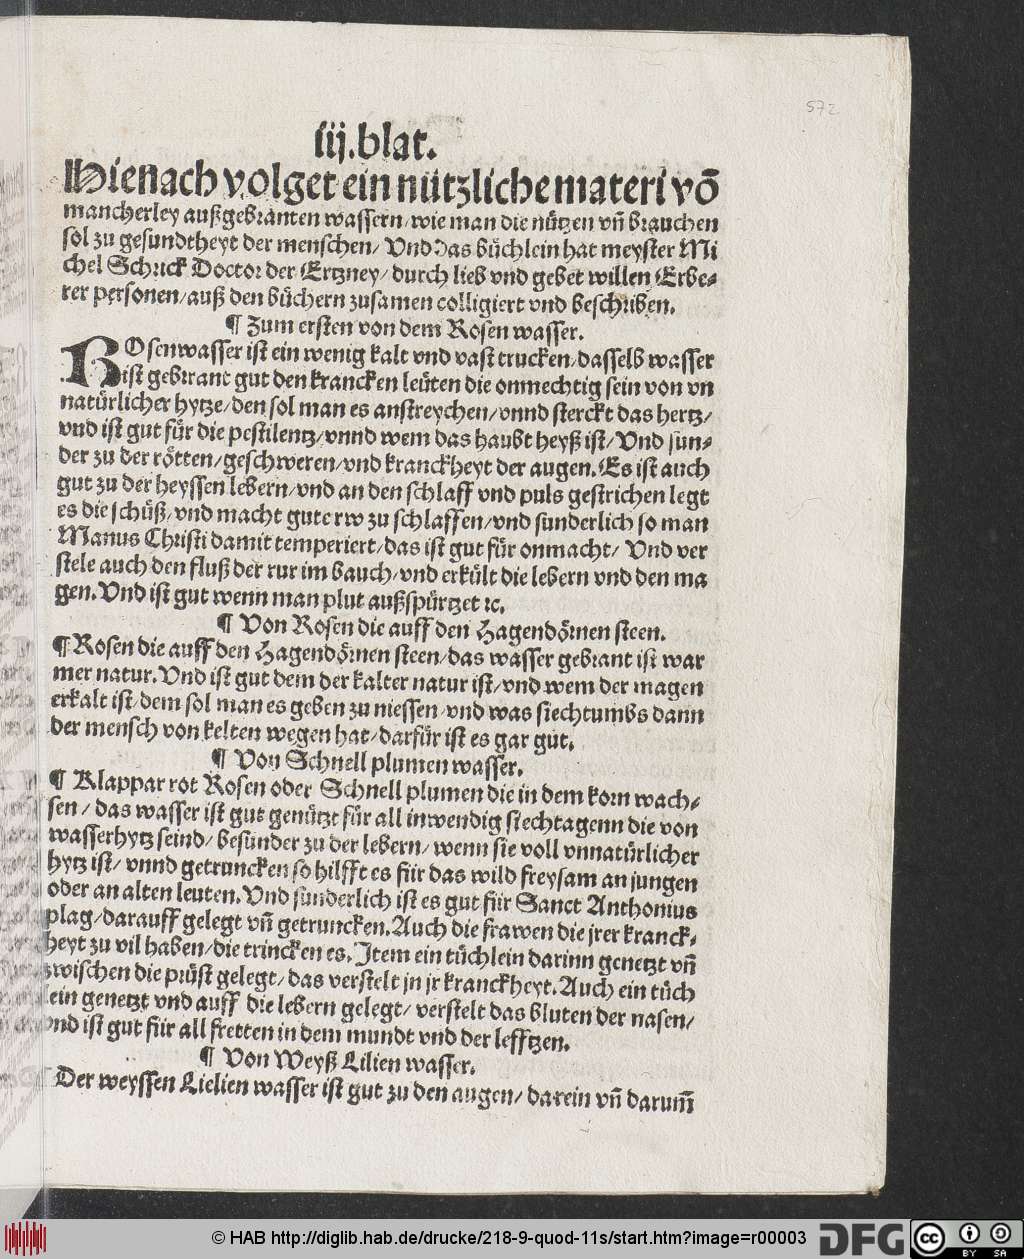 572
iij.blat.
Hienach volget ein nützliche materi võ
mancherley außgebranten wassern/wie man die nützen vñ brauchen
sol zu gesundtheyt der menschen/ Vnd das büchlein hat meyster Mi
chel Schrick Doctor der Ertzney/durch lieb vnd gebet willen Erbe-
rer personen/auß den büchern zusamen colligiert vnd beschriben.
¶ Zum ersten von dem Rosen wasser.
ROsenwasser ist ein wenig kalt vnd vast trucken/dasselb wasser
ist gebrant gut den krancken leüten die onmechtig sein von vn
natürlicher hytze/den sol man es anstreychen/vnnd sterckt das hertz/
vnd ist gut für die pestilentz/vnnd wem das haubt heyß ist/ Vnd sun-
der zu der rötten/geschweren/vnd kranckheyt der augen. Es ist auch
gut zu der heyssen lebern/vnd an den schlaff vnd puls gestrichen legt
es die schüß/vnd macht gute rw zu schlaffen/vnd sunderlich so man
Manus Christi damit temperiert/das ist gut für onmacht/ Vnd ver
stele auch den fluß der rur im bauch/vnd erkült die lebern vnd den ma
gen. Vnd ist gut wenn man plut außspürtzet ꝛc.
¶ Von Rosen die auff den Hagendörnen steen.
¶ Rosen die auff den Hagendörnen steen/das wasser gebrant ist war
mer natur. Vnd ist gut dem der kalter natur ist/vnd wem der magen
erkalt ist/dem sol man es geben zu niessen/vnd was siechtumbs dann
der mensch von kelten wegen hat/darfür ist es gar gut.
¶ Von Schnell plumen wasser.
¶ Klappar rot Rosen oder Schnell plumen die in dem korn wach-
sen/ das wasser ist gut genützt für all inwendig siechtagenn die von
wasserhytz seind/ besunder zu der lebern/ wenn sie voll vnnatürlicher
hytz ist/ vnnd getruncken so hilfft es für das wild freysam an jungen
oder an alten leuten. Vnd sunderlich ist es gut für Sanct Anthonius
plag/darauff gelegt vñ getruncken. Auch die frawen die jrer kranck-
heyt zu vil haben/die trincken es. Item ein tüchlein darinn genetzt vñ
zwischen die prüst gelegt/ das verstelt jn jr kranckheyt. Auch ein tüch
lein genetzt vnd auff die lebern gelegt/ verstelt das bluten der nasen/
vnd ist gut für all fretten in dem mundt vnd der lefftzen.
¶ Von Weyß Lilien wasser.
Der weyssen Lielien wasser ist gut zu den augen/ darein vñ darum̃
© HAB http://diglib.hab.de/drucke/218-9-quod-11s/start.htm?image=r00003
DFG
cc
BY SA